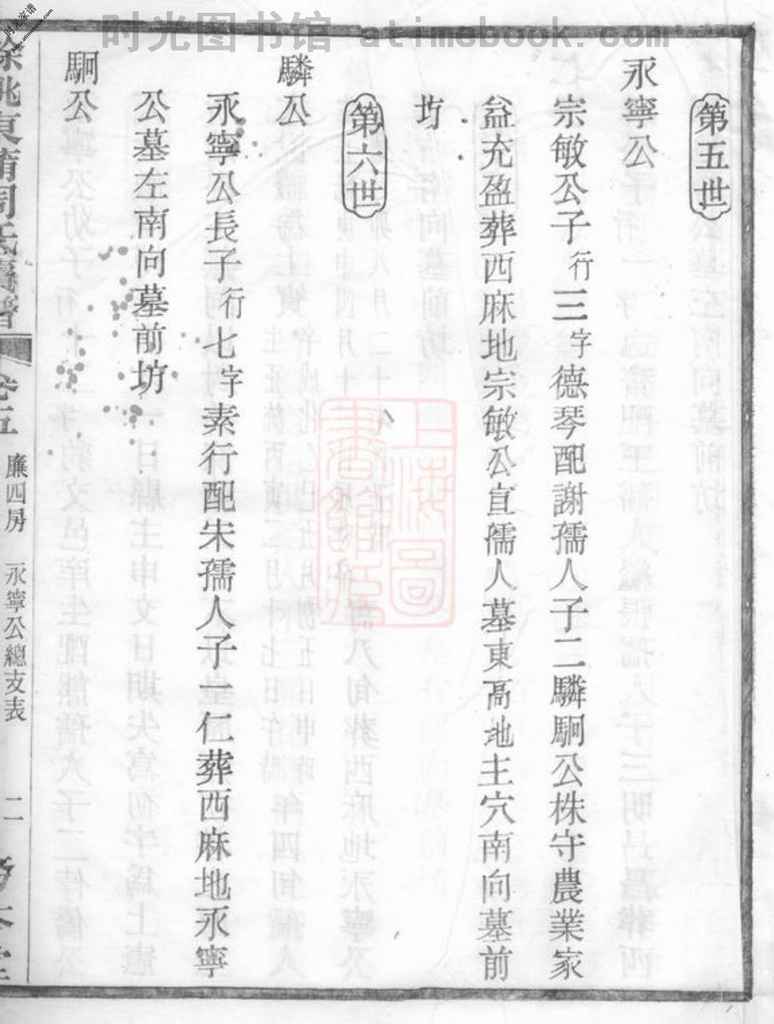 时光图书馆 - atimebook.com
第五世
永寧公
宗敏公子行三字德琴配謝孺人子二驎駉公株守農業家
益充盈葬西麻地宗敏公宜孺人墓東高地主穴南向墓前
坊
第六世
驎公
永寧公長子行七字素行配朱孺人子一仁葬西麻地永寧
公墓左南向墓前坊
駉公
卷五
廉四房 永寧公總支表
二
上海圖書館藏